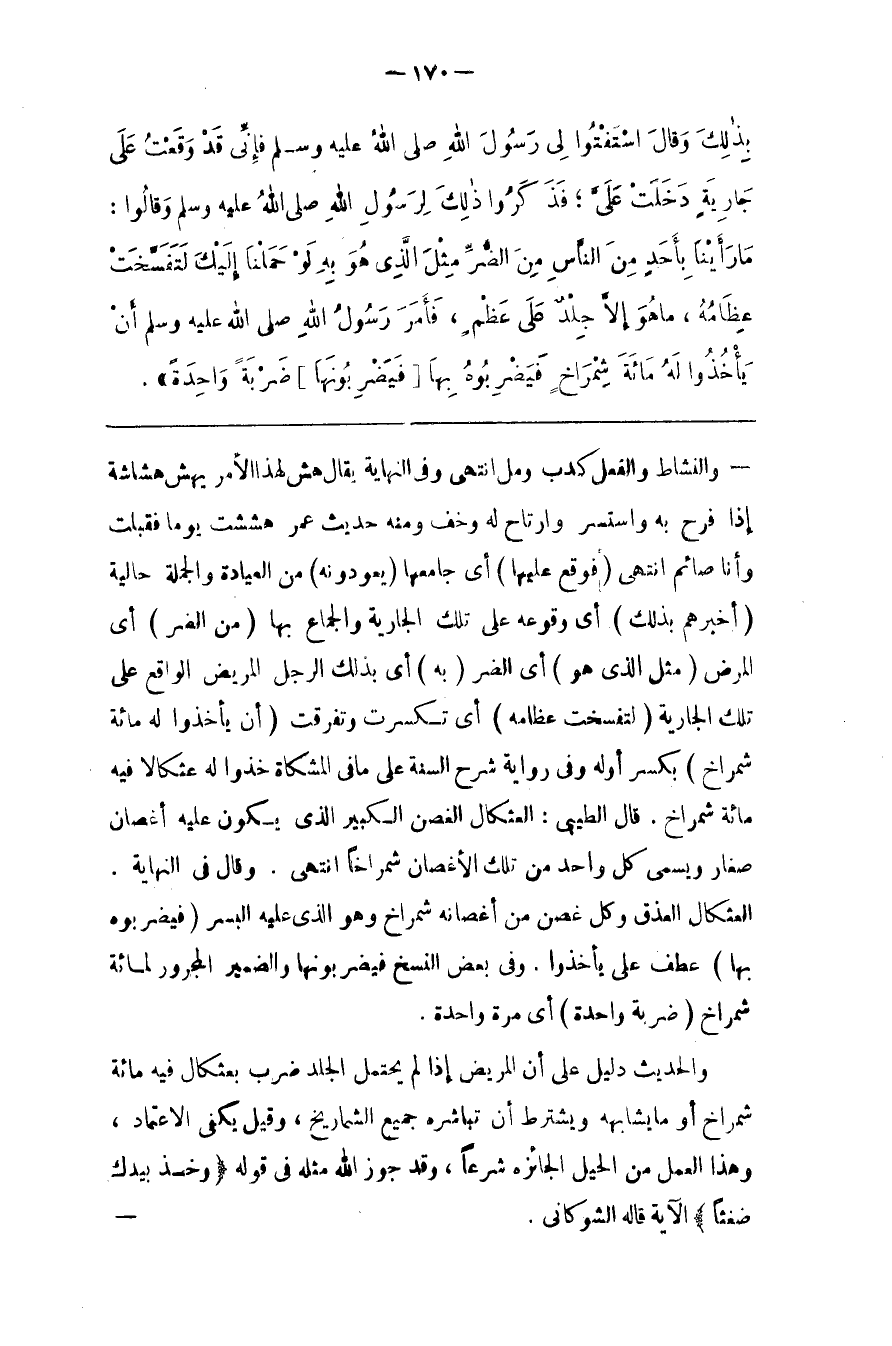 — ١٧٠ —
بِذٰلِكَ وَقَالَ اسْتَفْتُوا لِى رَسُولَ اللهِ صلى اللهُ عليه وسـلم فإِنِّى قَدْ وَقَعْتُ عَلَى
جَارِيَةٍ دَخَلَتْ عَلَىَّ ؛ فَذَ كَرُوا ذٰلِكَ لِرَسُولِ اللهِ صلى اللهُ عليه وسلم وَقالُوا :
مَارَأَيْنَا بِأَحَدٍ مِنَ النَّاسِ مِنَ الضُّرِّ مِثْلَ الَّذِى هُوَ بِهِ لَوْ حَمَلْنَا إِلَيْكَ لَتَفَسَّخَتْ
عِظَامُهُ ، ماهُوَ إِلاَّ جِلْدٌ عَلَى عَظْمٍ ، فَأَمَرَ رَسُولُ اللهِ صلى الله عليه وسلم أَنْ
يَأْخُذُوا لَهُ مَائَةَ شِمْرَاخٍ فَيَضْرِبُوهُ بِهاَ [ فَيَضْرِبُونَهَا ] ضَرْبَةً وَاحِدَةً» .
— والنشاط والفعل كدب ومل انتهى وفى النهاية يقال هش لهذا الأمر يهش هشاشة
إذا فرح به واستسر وارتاح له وخف ومنه حديث عمر هششت يوما فقبلت
وأنا صائم انتهى (فوقع عليها) أى جامعها (يعودونه) من العيادة والجملة حالية
(أخبرهم بذلك) أى وقوعه على تلك الجارية والجماع بها (من الضر) أى
المرض (مثل الذى هو) أى الضر (به) أى بذلك الرجل المريض الواقع على
تلك الجارية (لتفسخت عظامه) أى تـكسرت وتفرقت (أن يأخذوا له مائة
شمراخ) بكسر أوله وفى رواية شرح السنة على مافى المشكاة خذوا له عثكالا فيه
مائة شمراخ . قال الطيبى : العثكال الغصن الـكبير الذى يـكون عليه أغصان
صغار ويسمى كل واحد من تلك الأغصان شمراخاً انتهى . وقال فى النهاية .
العثكال العذق وكل غصن من أغصانه شمراخ وهو الذى عليه البسر (فيضربوه
بها) عطف على يأخذوا . وفى بعض النسخ فيضربونها والضمير المجرور لمـائة
شمراخ (ضربة واحدة) أى مرة واحدة .
والحديث دليل على أن المريض إذا لم يحتمل الجلد ضرب بعثكال فيه مائة
شمراخ أو مايشابهه ويشترط أن تباشره جميع الشماريخ ، وقيل يكفى الاعتماد ،
وهذا العمل من الحيل الجائزه شرعاً ، وقد جوز الله مثله فى قوله ﴿وخـذ بيدك
ضغثاً﴾ الآية قاله الشوكانى . —